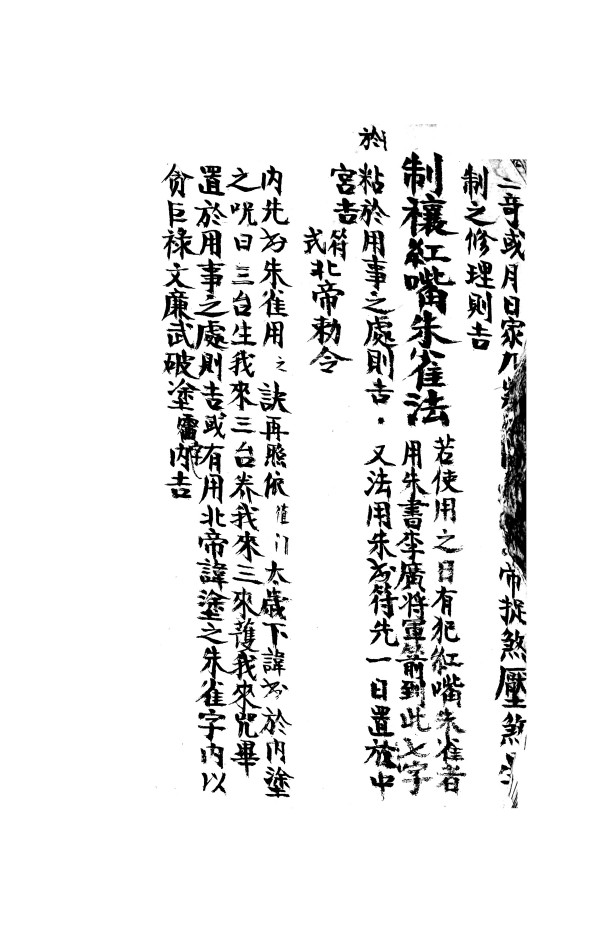 二奇或月日家八 帝捉煞壓煞
制之修理則吉
制禳紅嘴朱雀法
若使用之日有犯紅嘴朱雀者
用朱書李廣將軍箭到此七字
於
粘於用事之處則吉．又法用朱书符先一日置放中
宮吉
符式
北帝勅令
內先书朱雀用之訣再照依值门太歲下諱书於內塗
之咒曰三台生我來三台养我來三來護我來咒畢
置於用事之處則吉或有用北帝諱塗之朱雀字內以
貪巨祿文廉武破塗 內吉